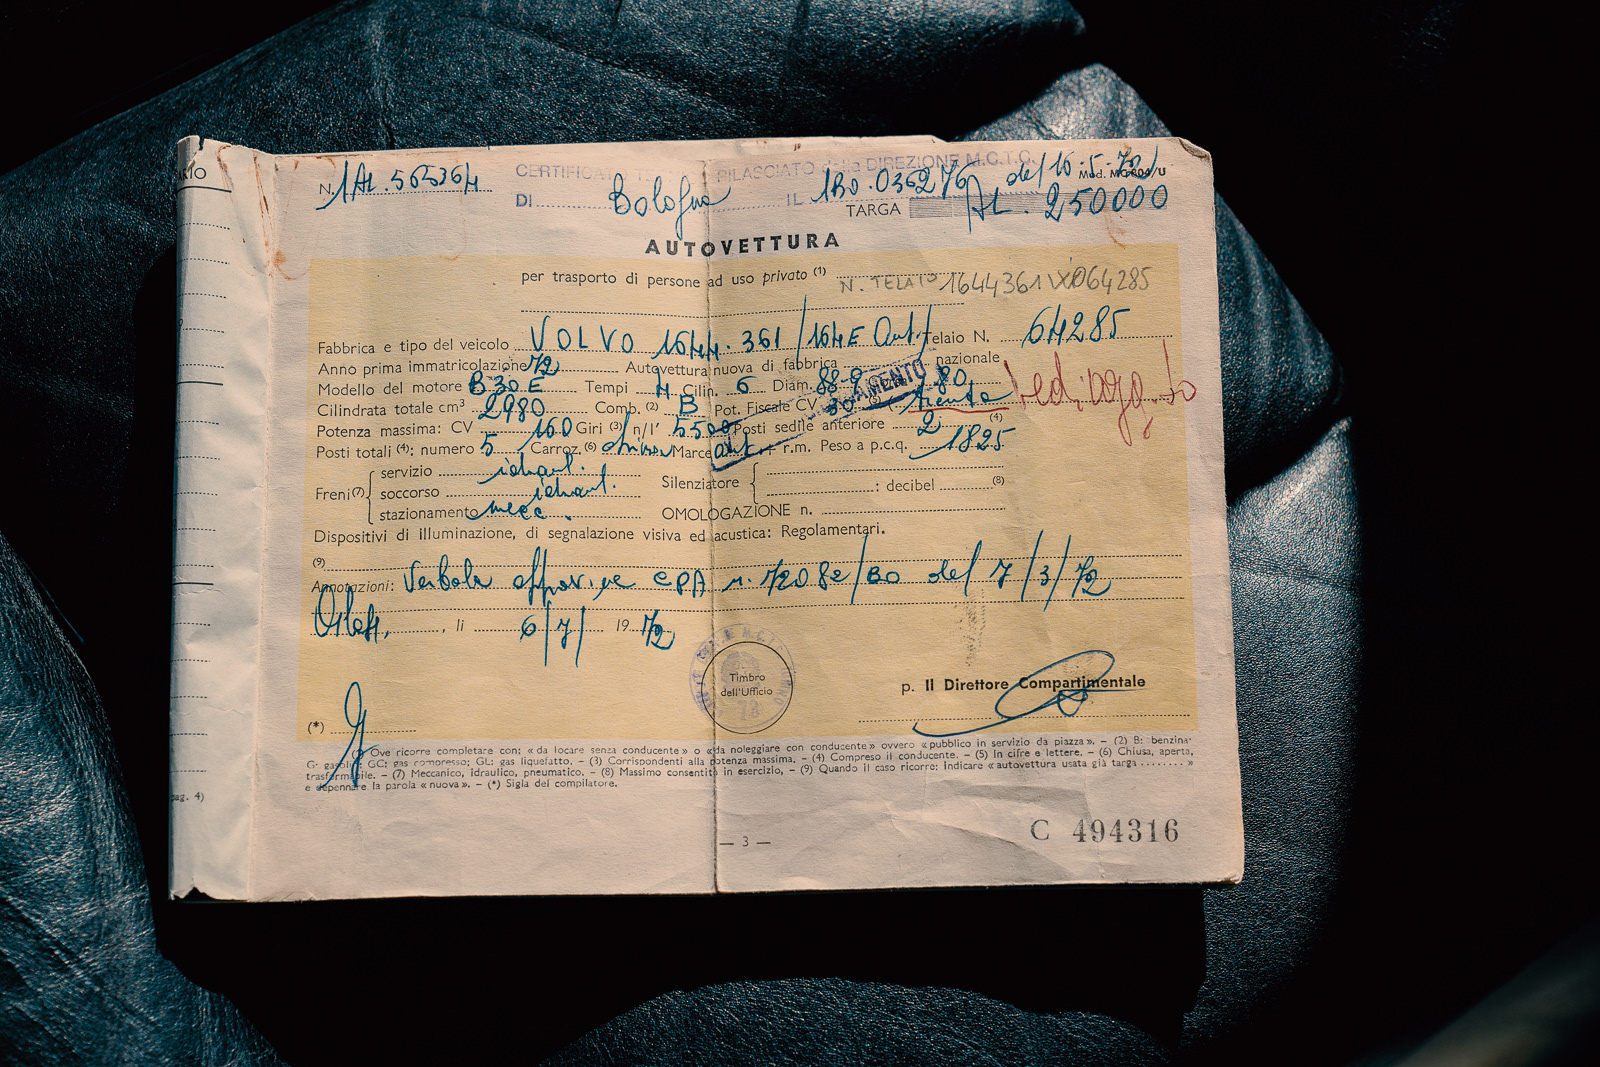 RIO
N. 1AL. 565364
CERTIFICATO RILASCIATO dalla DIREZIONE M.C.T.C.
DI Bologna IL 1BO.036276 del 16.5.72
Mod. MC 804/U
TARGA AL. 250000
AUTOVETTURA
per trasporto di persone ad uso privato (1)
N. TELAIO 1644361 064285
Fabbrica e tipo del veicolo VOLVO 1644.361/164E Aut/ Telaio N. 64285
Anno prima immatricolazione 72 Autovettura nuova di fabbrica nazionale
Modello del motore B30E Tempi 4 Cilin. 6 Diam. 88.9 80
Cilindrata totale cm³ 2980 Comb. (2) B Pot. Fiscale CV 30 (5) ( trenta
Potenza massima: CV 160 Giri (3) n/1' 5500 Posti sedile anteriore 2 (4)
Posti totali (4): numero 5 Carroz. (6) chiusa Marce aut. + r.m. Peso a p.c.q. 1825
Freni (7) servizio idraul.
soccorso idraul.
stazionamento mecc.
Silenziatore : decibel (8)
OMOLOGAZIONE n.
Dispositivi di illuminazione, di segnalazione visiva ed acustica: Regolamentari.
(9)
Annotazioni: Verbale CPA n. 72082/BO del 7/3/72
, li 6/7/ 19 72
Timbro
dell'Ufficio
p. Il Direttore Compartimentale
(*)
(1) Ove ricorre completare con: «da locare senza conducente» o «da noleggiare con conducente» ovvero «pubblico in servizio da piazza». – (2) B: benzina;
G: gasolio; GC: gas compresso; GL: gas liquefatto. – (3) Corrispondenti alla potenza massima. – (4) Compreso il conducente. – (5) In cifre e lettere. – (6) Chiusa, aperta,
trasformabile. – (7) Meccanico, idraulico, pneumatico. – (8) Massimo consentito in esercizio. – (9) Quando il caso ricorre: Indicare «autovettura usata già targa ........»
e depennare la parola «nuova». – (*) Sigla del compilatore.
pag. 4)
— 3 —
C 494316